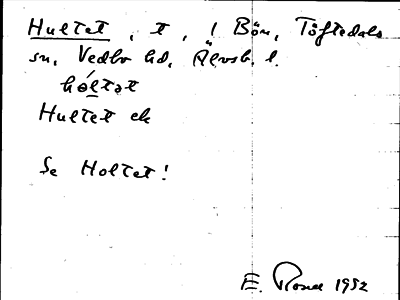 Hultet, t, 1 Bön, Töftedals
sn, Vedbo hd, Älvsb. l.
hóltət
Hultet ek
Se Holtet!
E. 1952